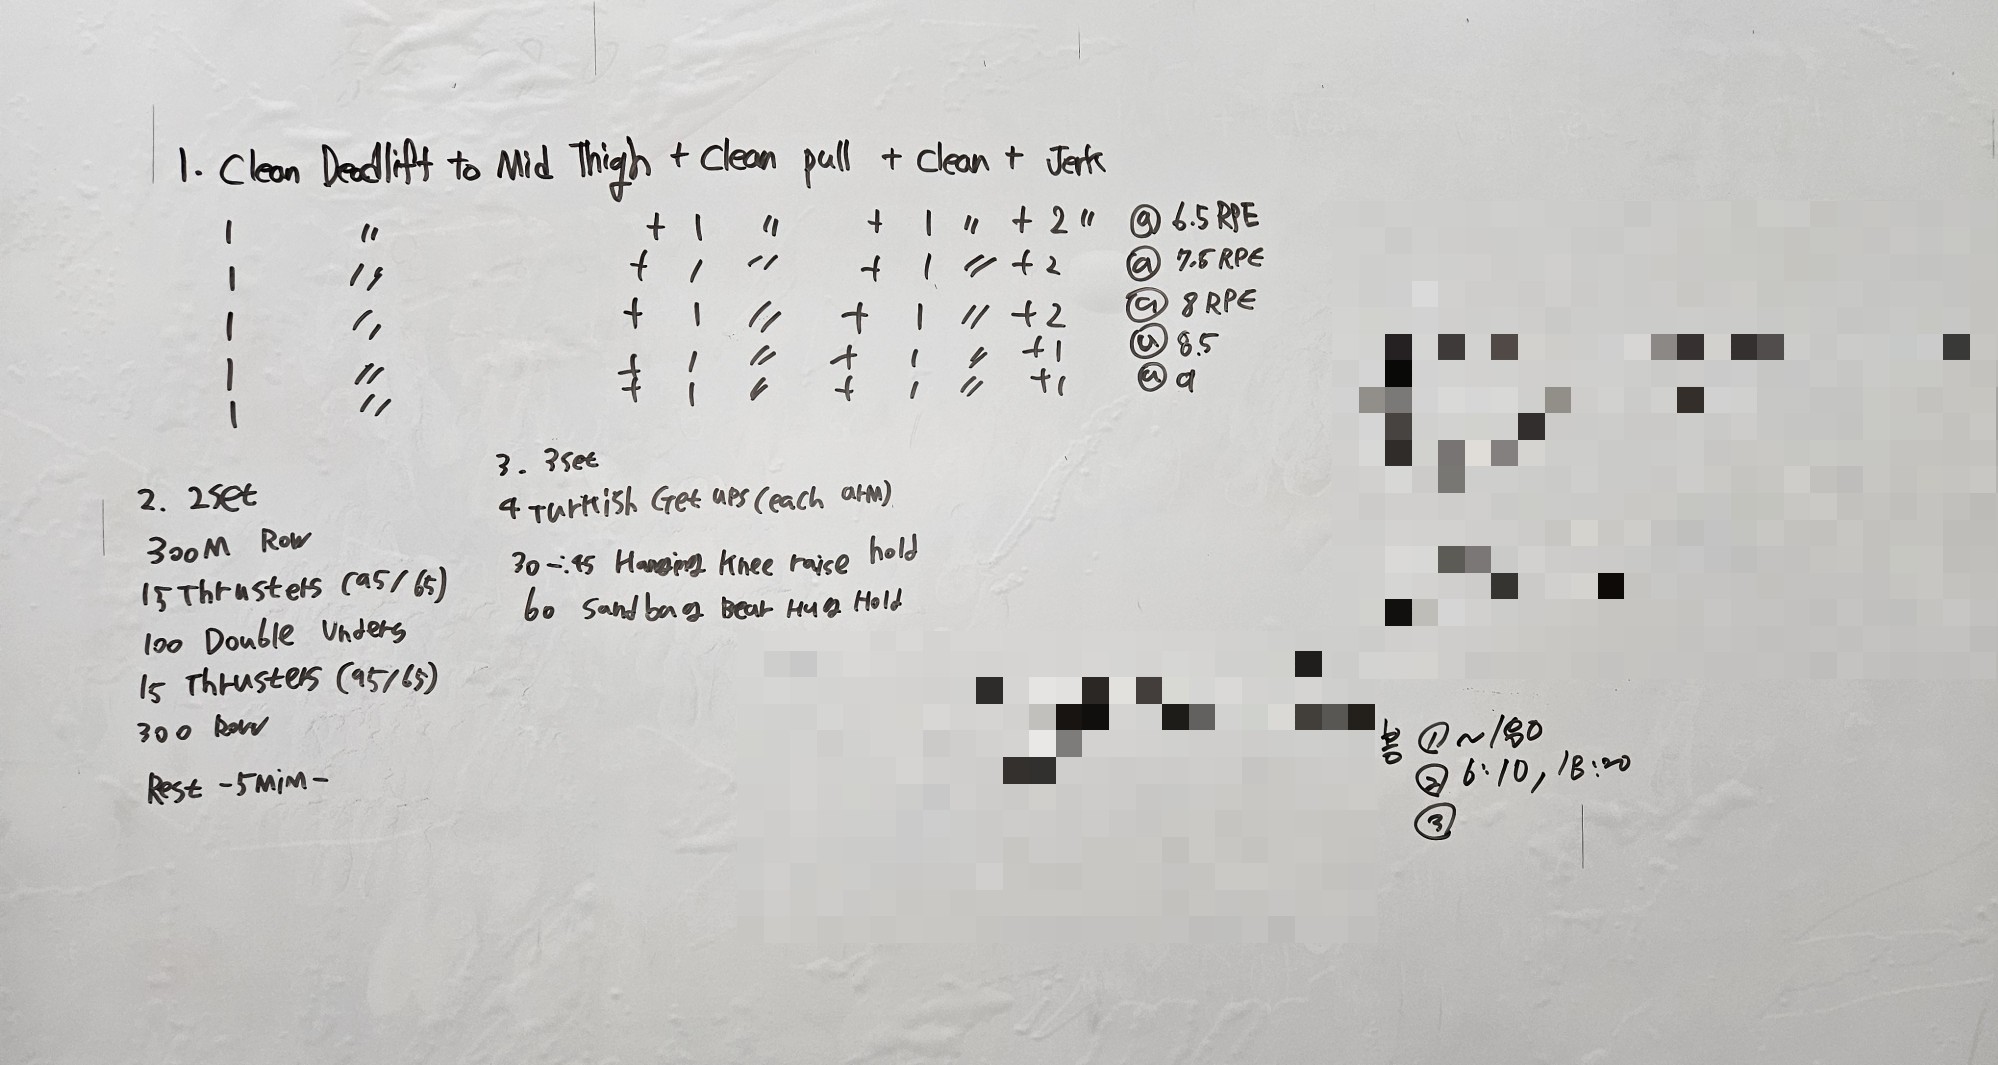 1. Clean Deadlift to Mid Thigh + Clean pull + Clean + Jerk
1 " + 1 " + 1 " + 2 " @ 6.5 RPE
1 " + 1 " + 1 " + 2 @ 7.5 RPE
1 " + 1 " + 1 " + 2 @ 8 RPE
1 " + 1 " + 1 " + 1 @ 8.5
1 " + 1 " + 1 " + 1 @ 9
2. 2set
300M Row
15 Thrusters (95/65)
100 Double Unders
15 Thrusters (95/65)
300 Row
Rest -5Min-
3. 3set
4 Turkish Get ups (each arm)
30-:45 Hanging Knee raise hold
60 Sandbag Bear Hug Hold
① ~180
② 6:10, 18:20
③